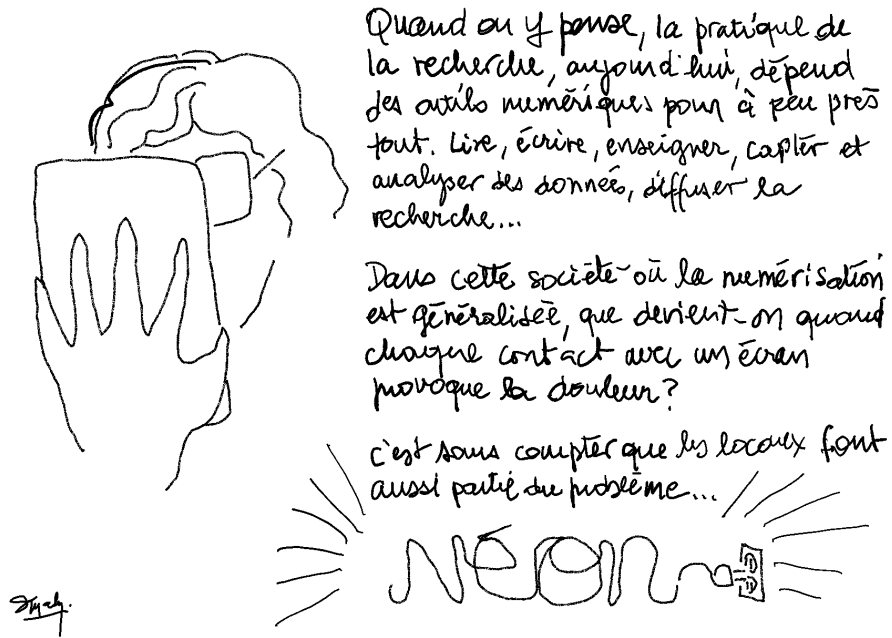 Quand on y pense, la pratique de
la recherche, aujourd'hui, dépend
des outils numériques pour à peu près
tout. Lire, écrire, enseigner, capter et
analyser des données, diffuser la
recherche...
Dans cette société où la numérisation
est généralisée, que devient-on quand
chaque contact avec un écran
provoque la douleur?
c'est sans compter que les locaux font
aussi partie du problème...
NÉON